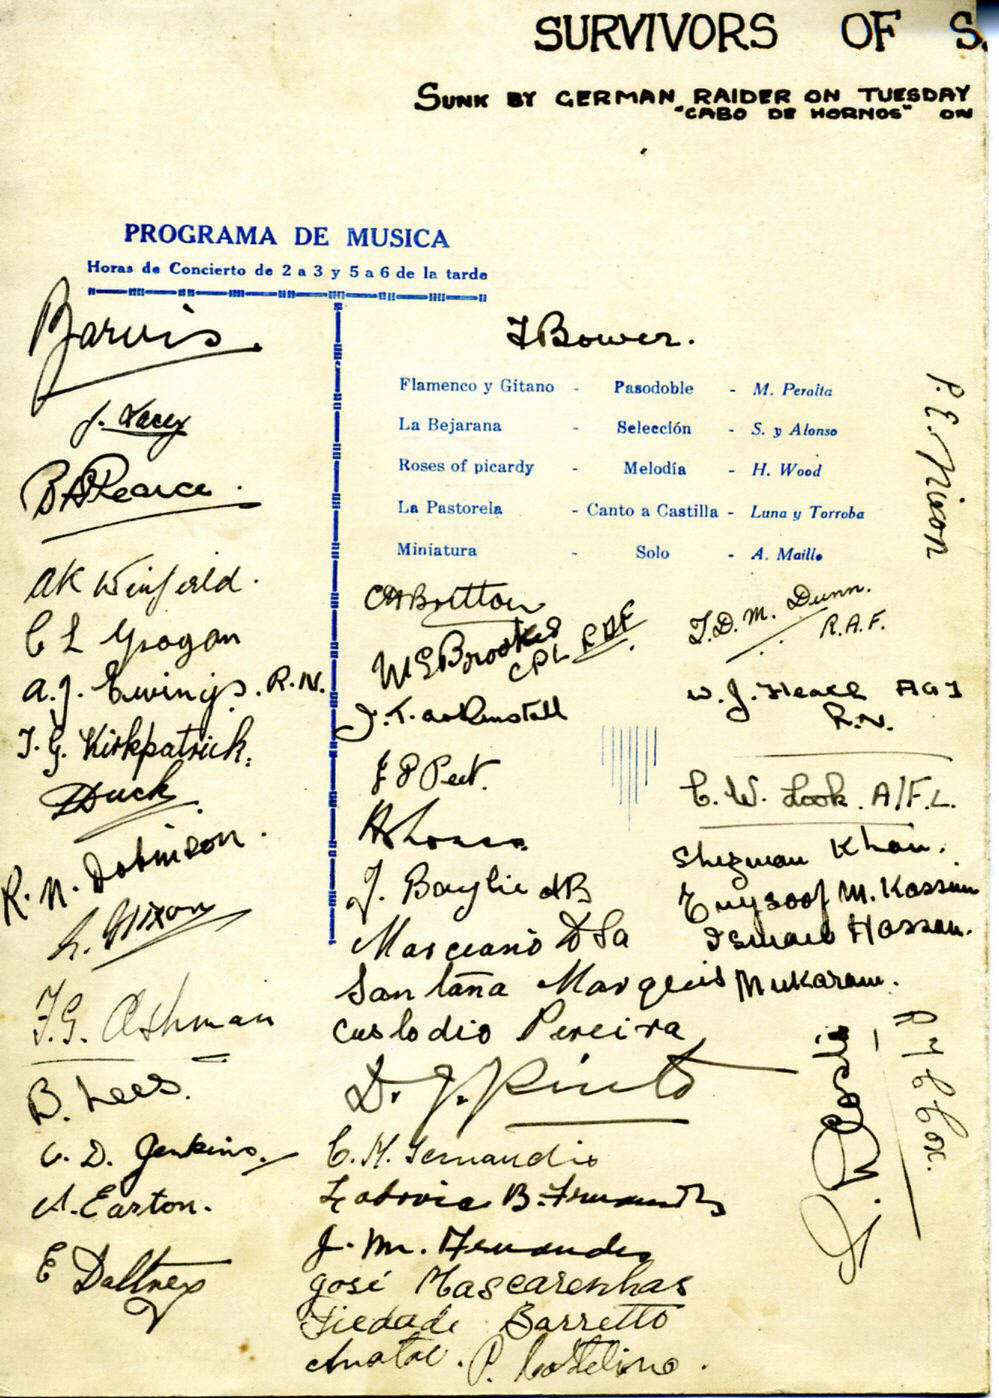 SURVIVORS OF S.
SUNK BY GERMAN RAIDER ON TUESDAY
"CABO DE HORNOS" ON
PROGRAMA DE MUSICA
Horas de Concierto de 2 a 3 y 5 a 6 de la tarde
Jarvis
J. Lacey
Pearce
AK Winfield.
C L Grogan
A. J. Ewings. R.N.
T. G. Kirkpatrick.
Duck
R. N. Robinson.
Nixon
F. G. Ashman
B. Lees.
D. Jenkins.
A. Easton.
E Daltrey
Bower.
Flamenco y Gitano - Pasodoble - M. Peralta
La Bejarana - Selección - S. y Alonso
Roses of picardy - Melodía - H. Wood
La Pastorela - Canto a Castilla - Luna y Torroba
Miniatura - Solo - A. Maille
P. E. Nixon
Britton
W E Brookes CPL RAF
J. P Peet.
J. Baylie AB
Marciano D Sa
Santana Marqeuis
Custodio Pereira
D. J. Pinto
C. M. Fernandis
B. Fernandes
J. M. Fernandes
José Mascarenhas
Piedade Barretto
P. Costelino.
D. M. Dunn.
R.A.F.
W. J.
R.N.
C. W. Look. A/F.L.
Khan.
M. Kassum
Ismail Hassan.
Mukaram.
Cox.